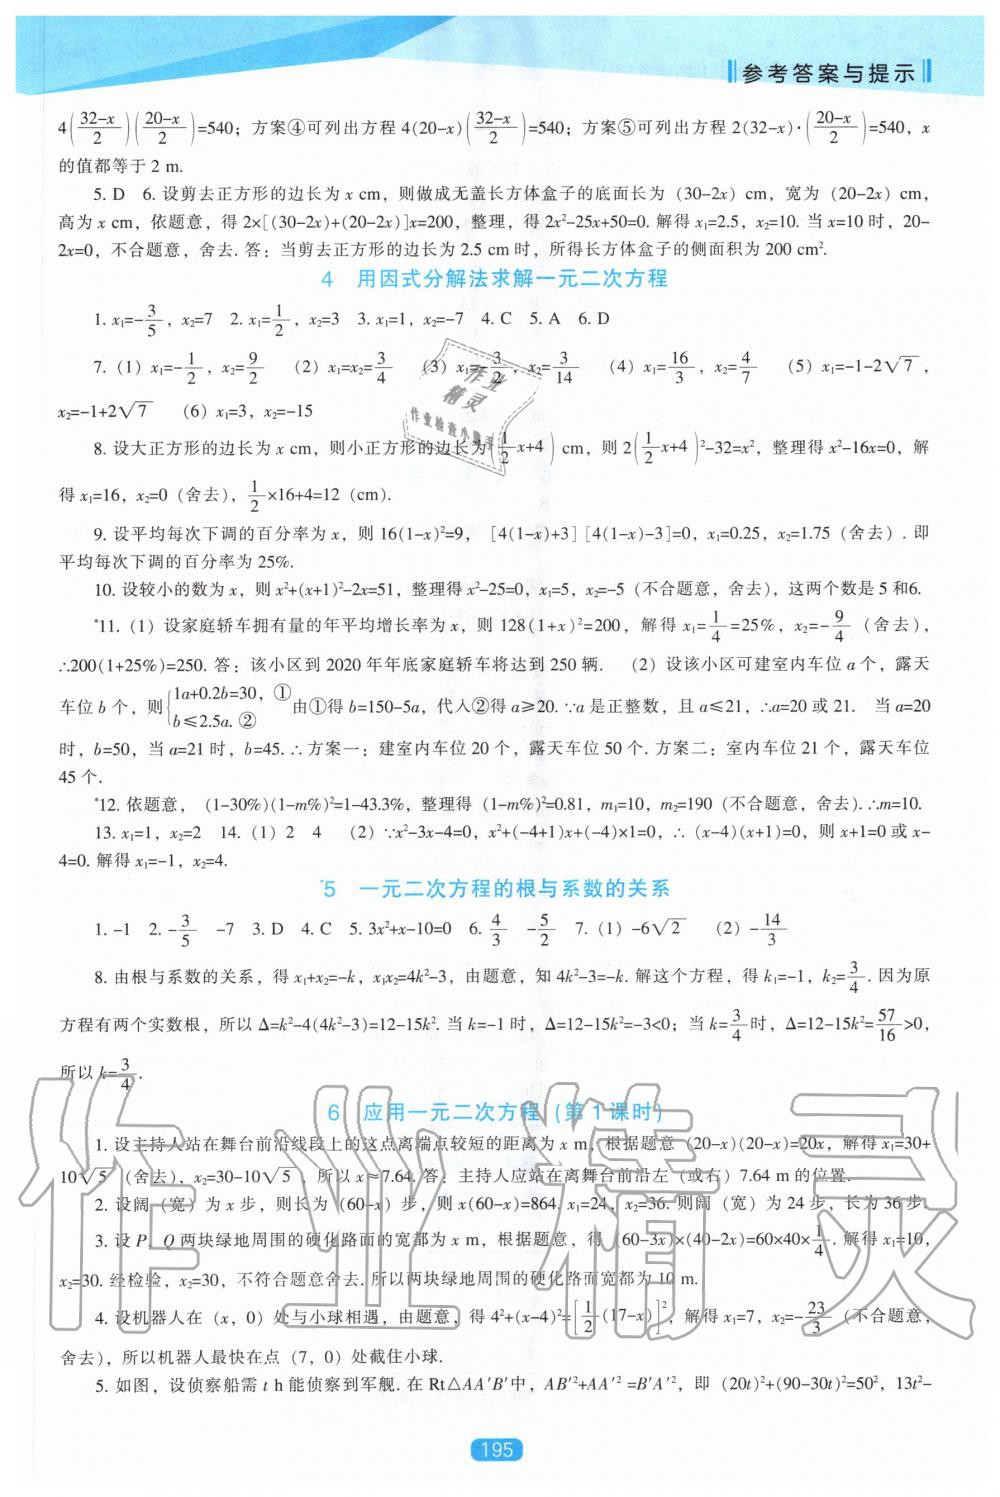 参考答案与提示
4((32-x)/2)((20-x)/2)=540；方案④可列出方程 4(20-x)((32-x)/2)=540；方案⑤可列出方程 2(32-x)·((20-x)/2)=540，x
的值都等于 2 m.
5. D 6. 设剪去正方形的边长为 x cm，则做成无盖长方体盒子的底面长为（30-2x）cm，宽为（20-2x）cm，
高为 x cm，依题意，得 2×[(30-2x)+(20-2x)]x=200，整理，得 2x²-25x+50=0. 解得 x₁=2.5，x₂=10. 当 x=10 时，20-
2x=0，不合题意，舍去. 答：当剪去正方形的边长为 2.5 cm 时，所得长方体盒子的侧面积为 200 cm².
4 用因式分解法求解一元二次方程
1. x₁=-3/5，x₂=7 2. x₁=1/2，x₂=3 3. x₁=1，x₂=-7 4. C 5. A 6. D
7. (1) x₁=-1/2，x₂=9/2 (2) x₁=x₂=3/4 (3) x₁=-3/2，x₂=3/14 (4) x₁=16/3，x₂=4/7 (5) x₁=-1-2√7，
x₂=-1+2√7 (6) x₁=3，x₂=-15
8. 设大正方形的边长为 x cm，则小正方形的边长为(1/2x+4) cm，则 2(1/2x+4)²-32=x²，整理得 x²-16x=0，解
得 x₁=16，x₂=0（舍去），1/2×16+4=12（cm）.
9. 设平均每次下调的百分率为 x，则 16(1-x)²=9，[4(1-x)+3][4(1-x)-3]=0，x₁=0.25，x₂=1.75（舍去）. 即
平均每次下调的百分率为 25%.
10. 设较小的数为 x，则 x²+(x+1)²-2x=51，整理得 x²-25=0，x₁=5，x₂=-5（不合题意，舍去），这两个数是 5 和6.
*11. (1) 设家庭轿车拥有量的年平均增长率为 x，则 128(1+x)²=200，解得 x₁=1/4=25%，x₂=-9/4（舍去），
∴200(1+25%)=250. 答：该小区到 2020 年年底家庭轿车将达到 250 辆. (2) 设该小区可建室内车位 a 个，露天
车位 b 个，则{1a+0.2b=30，① b≤2.5a. ② 由①得 b=150-5a，代入②得 a≥20. ∵a 是正整数，且 a≤21，∴a=20 或 21. 当 a=20
时，b=50，当 a=21 时，b=45. ∴方案一：建室内车位 20 个，露天车位 50 个. 方案二：室内车位 21 个，露天车位
45 个.
*12. 依题意，(1-30%)(1-m%)²=1-43.3%，整理得（1-m%)²=0.81，m₁=10，m₂=190（不合题意，舍去）. ∴m=10.
13. x₁=1，x₂=2 14. (1) 2 4 (2) ∵x²-3x-4=0，x²+(-4+1)x+(-4)×1=0，∴（x-4)(x+1)=0，则 x+1=0 或 x-
4=0. 解得 x₁=-1，x₂=4.
*5 一元二次方程的根与系数的关系
1. -1 2. -3/5 -7 3. D 4. C 5. 3x²+x-10=0 6. 4/3 -5/2 7. (1) -6√2 (2) -14/3
8. 由根与系数的关系，得 x₁+x₂=-k，x₁x₂=4k²-3，由题意，知 4k²-3=-k. 解这个方程，得 k₁=-1，k₂=3/4. 因为原
方程有两个实数根，所以 Δ=k²-4(4k²-3)=12-15k². 当 k=-1 时，Δ=12-15k²=-3<0；当 k=3/4时，Δ=12-15k²=57/16>0，
所以 k=3/4.
6 应用一元二次方程（第 1 课时）
1. 设主持人站在舞台前沿线段上的这点离端点较短的距离为 x m，根据题意（20-x)(20-x)=20x，解得 x₁=30+
10√5（舍去），x₂=30-10√5，所以 x≈7.64. 答：主持人应站在离舞台前沿左（或右）7.64 m 的位置.
2. 设阔（宽）为 x 步，则长为（60-x）步，则 x(60-x)=864. x₁=24，x₂=36. 则阔（宽）为 24 步，长为 36 步.
3. 设 P，Q 两块绿地周围的硬化路面的宽都为 x m，根据题意，得（60-3x)×(40-2x)=60×40×1/4. 解得 x₁=10，
x₂=30. 经检验，x₂=30，不符合题意舍去. 所以两块绿地周围的硬化路面宽都为 10 m.
4. 设机器人在（x，0）处与小球相遇，由题意，得 4²+(x-4)²=[1/2(17-x)]²，解得 x₁=7，x₂=-23/3（不合题意，
舍去），所以机器人最快在点（7，0）处截住小球.
5. 如图，设侦察船需 t h 能侦察到军舰. 在 Rt△AA′B′中，AB′²+AA′²=B′A′²，即（20t)²+(90-30t)²=50²，13t²-
195
作业精灵
作业检查小帮手
作业精灵